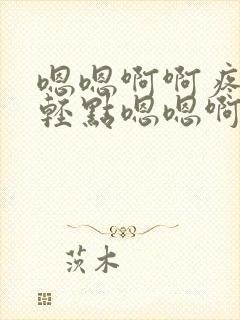 嗯嗯啊啊疼
輕點嗯嗯啊
茨木